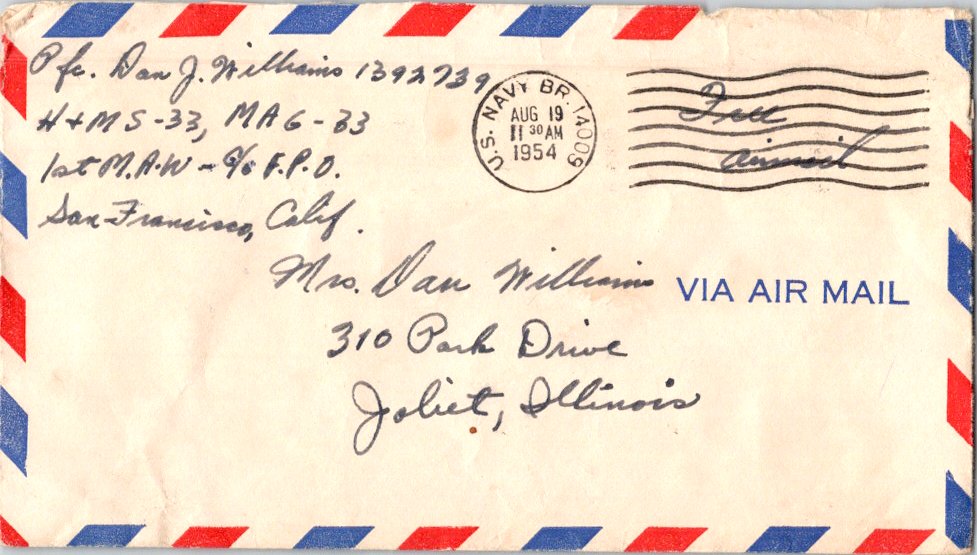 Pfc. Dan J. Williams 1392739
H+MS-33, MAG-33
1st M.A.W - c/o F.P.O.
San Francisco, Calif.
U.S. NAVY BR. 14009
AUG 19
11 30 AM
1954
Free
airmail
Mrs. Dan Williams
VIA AIR MAIL
310 Park Drive
Joliet, Illinois